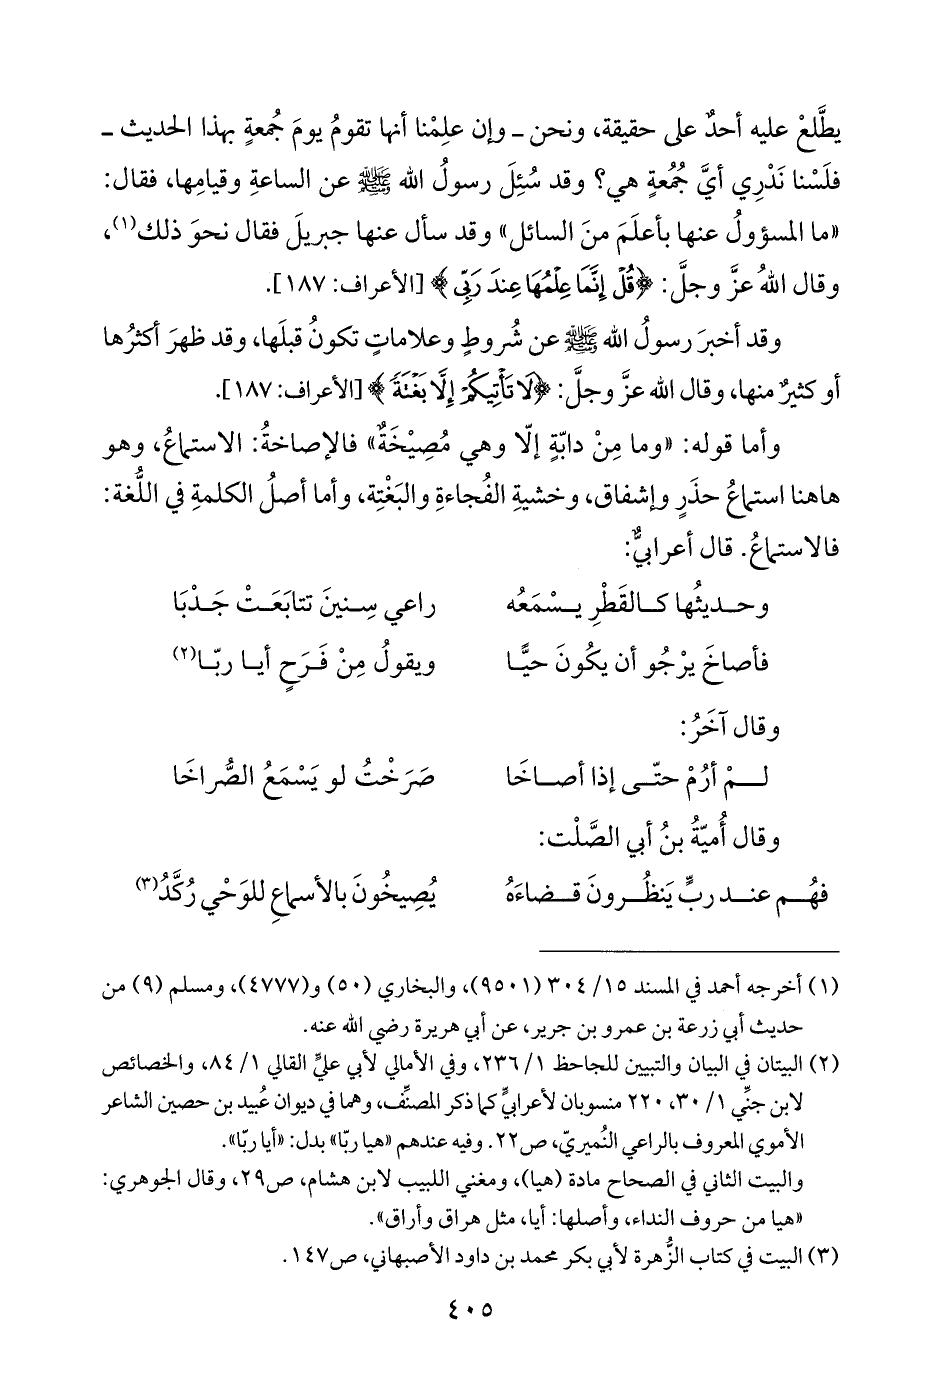 يطَّلعْ عليه أحدٌ على حقيقة، ونحن ـ وإن علِمْنا أنها تقومُ يومَ جُمعةٍ بهذا الحديث ـ
فلَسْنا نَدْرِي أيَّ جُمُعةٍ هي؟ وقد سُئِلَ رسولُ الله ﷺ عن الساعةِ وقيامِها، فقال:
«ما المسؤولُ عنها بأعلَمَ منَ السائل» وقد سأل عنها جبريلَ فقال نحوَ ذلك(١)،
وقال اللهُ عزَّ وجلَّ: ﴿قُلْ إِنَّمَا عِلْمُهَا عِندَ رَبِّى﴾ [الأعراف: ١٨٧].
وقد أخبرَ رسولُ الله ﷺ عن شُروطٍ وعلاماتٍ تكونُ قبلَها، وقد ظهرَ أكثرُها
أو كثيرٌ منها، وقال الله عزَّ وجلَّ: ﴿لَا تَأْتِيكُمْ إِلَّا بَغْتَةً﴾ [الأعراف: ١٨٧].
وأما قوله: «وما مِنْ دابّةٍ إلّا وهي مُصِيْخَةٌ» فالإصاخةُ: الاستماعُ، وهو
هاهنا استماعُ حذَرٍ وإشفاق، وخشيةِ الفُجاءةِ والبَغْتة، وأما أصلُ الكلمةِ في اللُّغة:
فالاستماعُ. قال أعرابيٌّ:
وحـديثُها كـالقَطْرِ يـسْمَعُه راعي سِـنينَ تتابَعَـتْ جَـدْبَا
فأصاخَ يرْجُو أن يكُونَ حيًّـا ويقولُ مِنْ فَـرَحٍ أيـا ربّـا(٢)
وقال آخَرُ:
لـمْ أرُمْ حتّـى إذا أصـاخَا صَرَخْـتُ لو يَسْمَعُ الصُّراخَا
وقال أُميّةُ بنُ أبي الصَّلْت:
فهُـم عنـد ربٍّ يَنظُـرونَ قـضاءَهُ يُصِيخُونَ بالأسماعِ للوَحْي رُكَّدُ(٣)
(١) أخرجه أحمد في المسند ١٥/ ٣٠٤ (٩٥٠١)، والبخاري (٥٠) و(٤٧٧٧)، ومسلم (٩) من
حديث أبي زرعة بن عمرو بن جرير، عن أبي هريرة رضي الله عنه.
(٢) البيتان في البيان والتبيين للجاحظ ١/ ٢٣٦، وفي الأمالي لأبي عليٍّ القالي ١/ ٨٤، والخصائص
لابن جنِّي ١/ ٣٠، ٢٢٠ منسوبان لأعرابيٍّ كما ذكر المصنِّف، وهما في ديوان عُبيد بن حصين الشاعر
الأموي المعروف بالراعي النُميريّ، ص٢٢. وفيه عندهم «هيا ربّا» بدل: «أيا ربّا».
والبيت الثاني في الصحاح مادة (هيا)، ومغني اللبيب لابن هشام، ص٢٩، وقال الجوهري:
«هيا من حروف النداء، وأصلها: أيا، مثل هراق وأراق».
(٣) البيت في كتاب الزُّهرة لأبي بكر محمد بن داود الأصبهاني، ص١٤٧.
٤٠٥